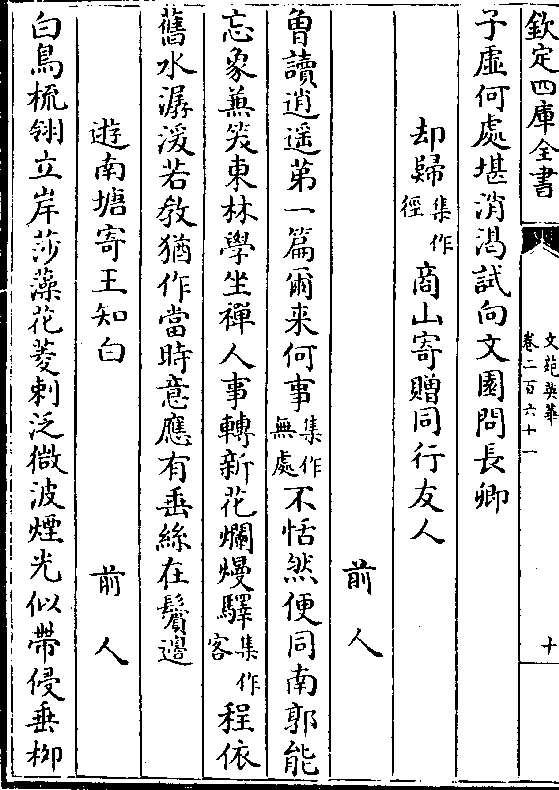 欽定四庫全書
文苑英華
卷二百六十一
十
子虛何處堪消渴試向文園問長卿
却歸集作徑商山寄贈同行友人
前人
曾讀逍遥第一篇爾来何事集作無處不恬然便同南郭能
忘象兼笑東林學坐禪人事轉新花爛熳驛集作客程依
舊水潺湲若教猶作當時意應有垂絲在鬢邊
遊南塘寄王知白
前人
白鳥梳翎立岸莎藻花菱刺泛微波煙光似帶侵垂柳